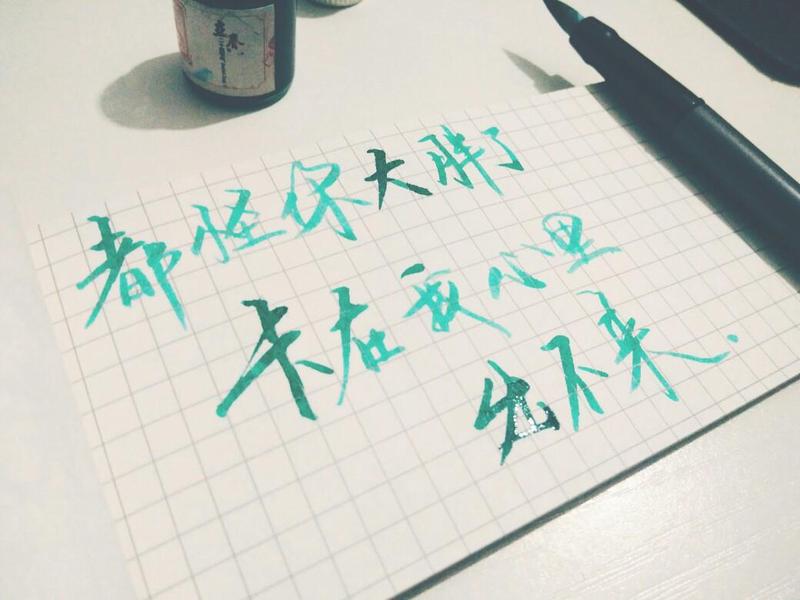 都怪你大胖了
卡在我心里
出不来.